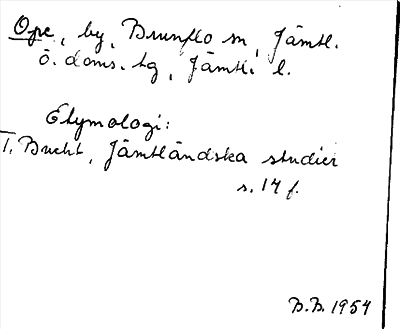 Ope, by, Brunflo sn, Jämtl.
ö. doms. tg, Jämtl. l.
Etymologi:
T. Bucht, Jämtländska studier
s. 14 f.
B.B. 1954